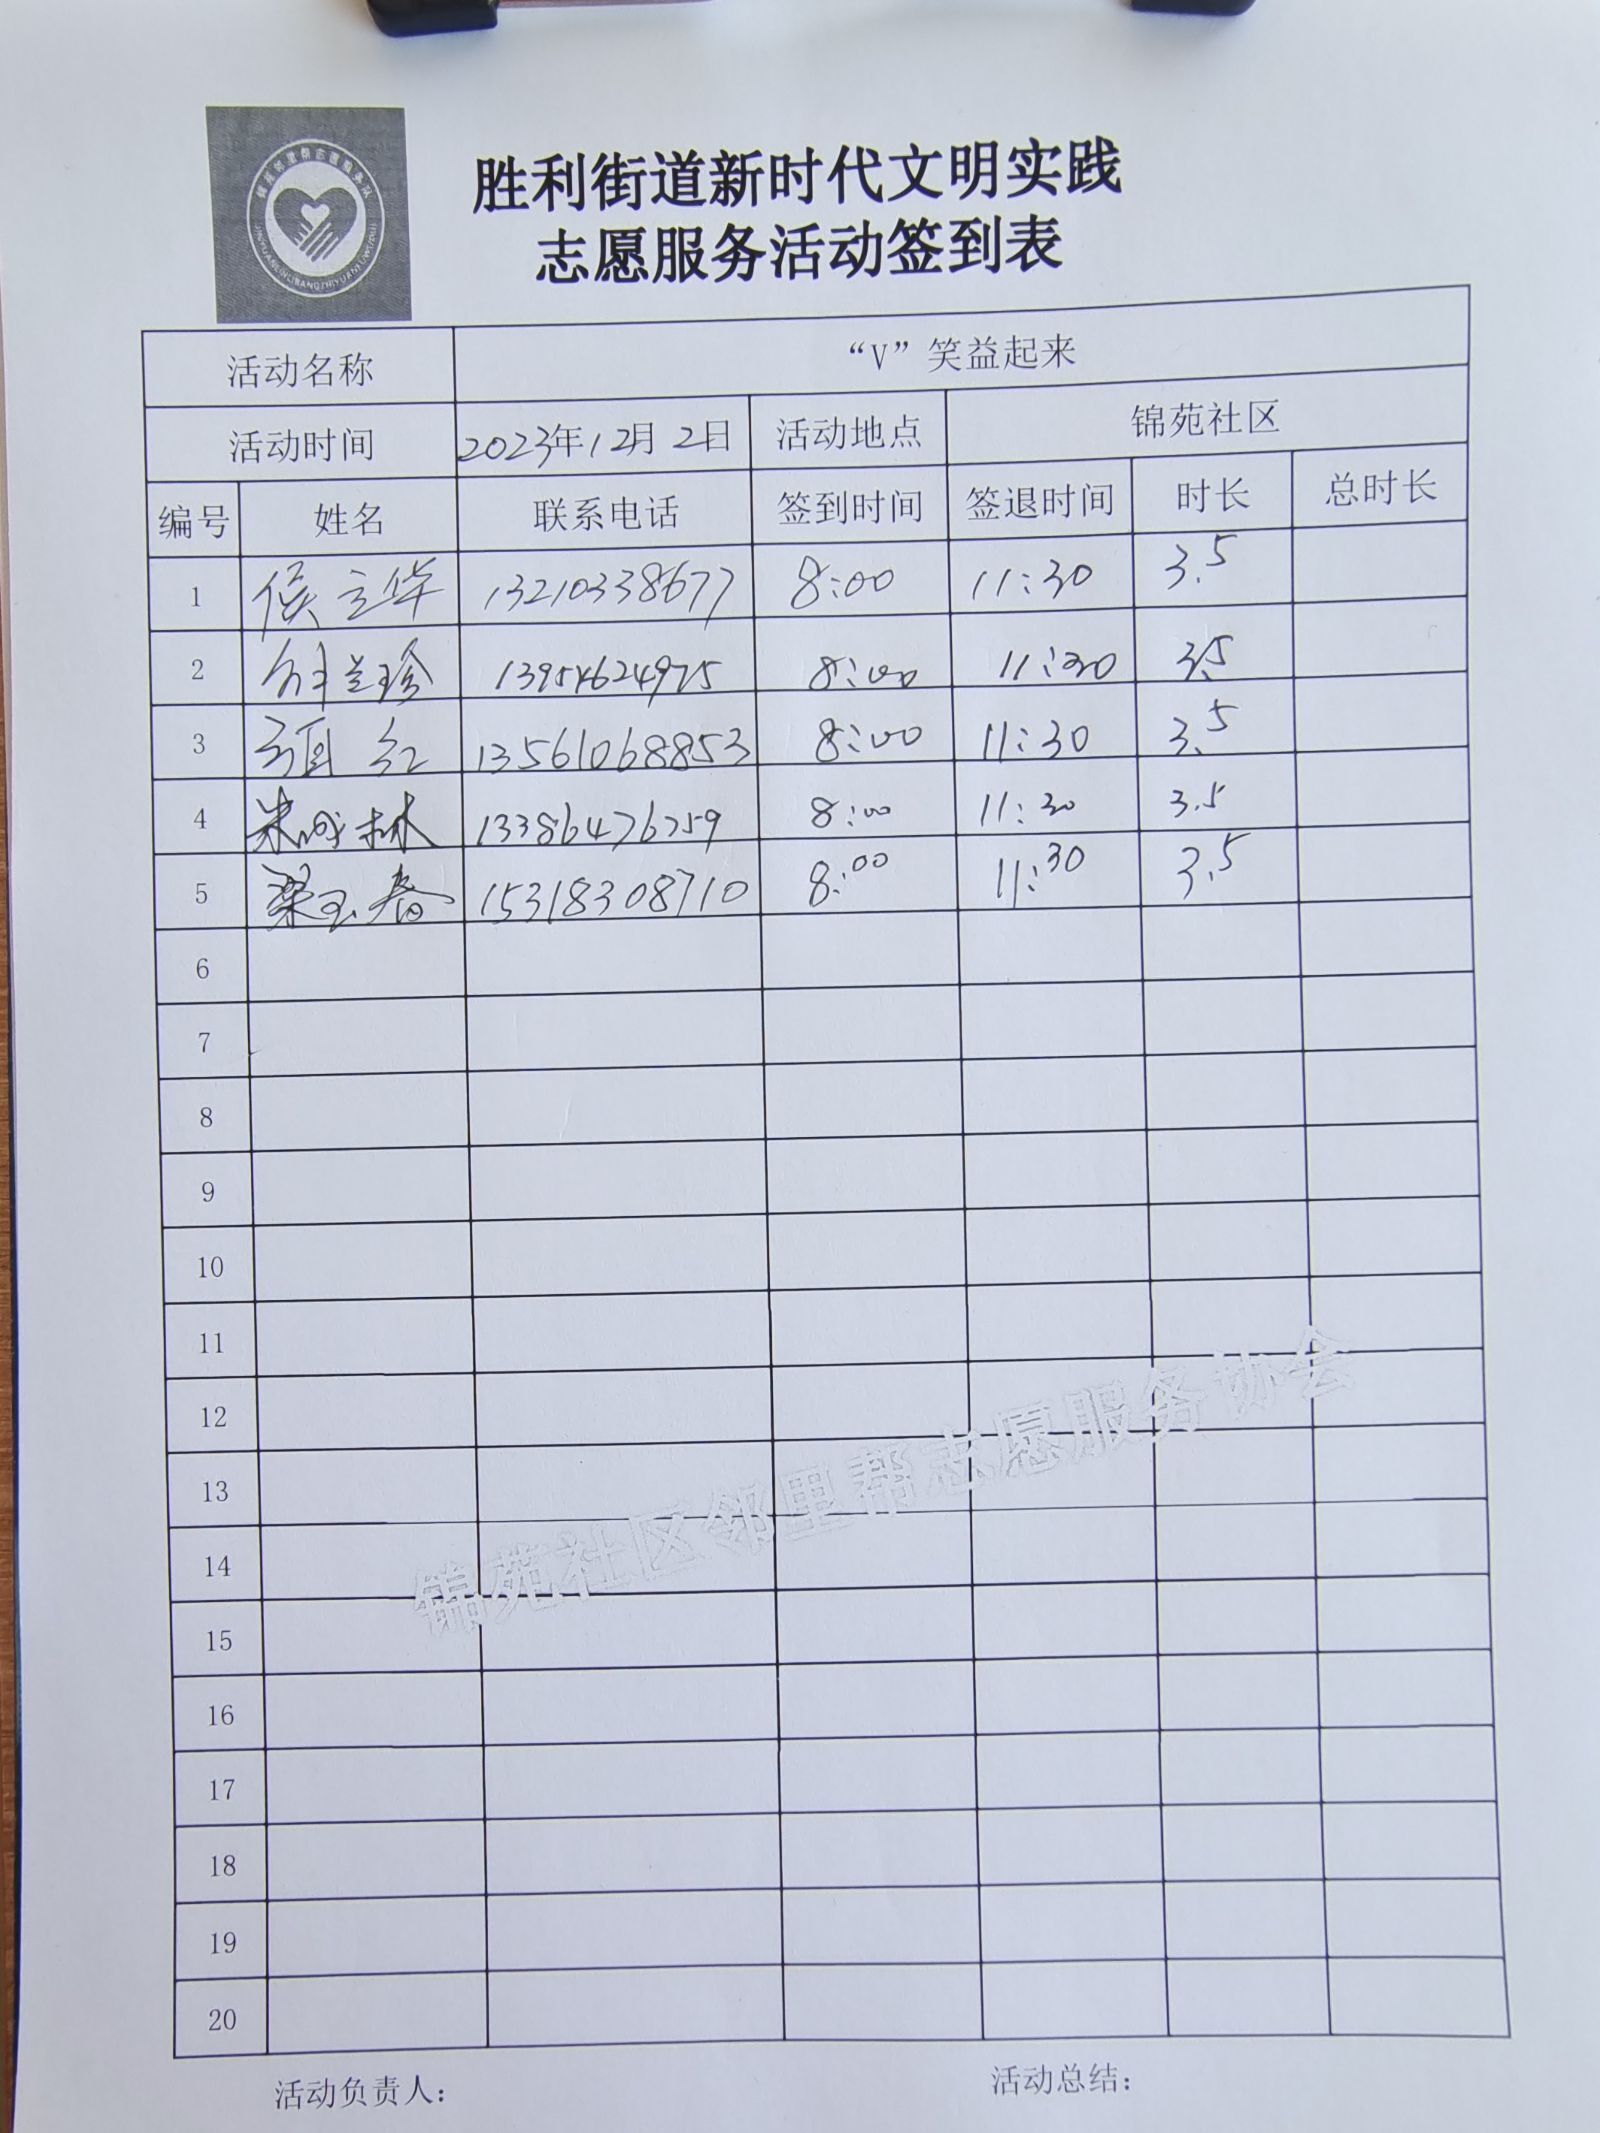 锦苑邻里帮志愿服务队
胜利街道新时代文明实践
志愿服务活动签到表
活动名称 “V”笑益起来
活动时间 2023年12月2日 活动地点 锦苑社区
编号 姓名 联系电话 签到时间 签退时间 时长 总时长
1 侯立华 13210338677 8:00 11:30 3.5
2 兰珍 13954624975 8:00 11:30 3.5
3 红 13561068853 8:00 11:30 3.5
4 林 13386476759 8:00 11:30 3.5
5 梁玉春 15318308710 8:00 11:30 3.5
6
7
8
9
10
11
12
13
14
15
16
17
18
19
20
锦苑社区邻里帮志愿服务协会
活动负责人: 活动总结: